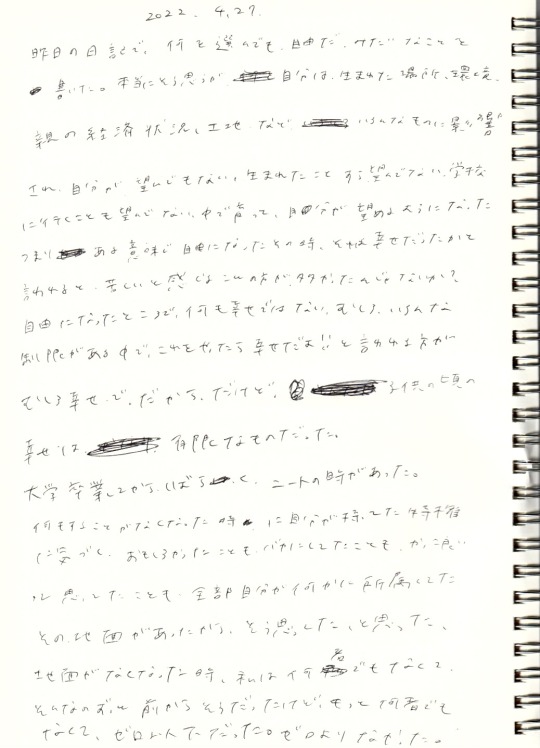 2022. 4.27.
昨日の日記で、何を選んでも、自由だ、みたいなことを
書いた。本当にそう思うが 自分は、生まれた場所、環境、
親の経済状況、土地 など いろんなものに影響
され、自分が望んでもない、生まれたことすら望んでない、学校
に行くことも望んでない、中で育って、自分が望めるようになった
つまり ある意味で自由になったその時、それは幸せだったかと
言われると、苦しいと感じることの方が多かったんじゃないか?
自由になったところで、何も幸せではない、むしろ、いろんな
制限がある中で、これをやったら幸せだよ!!と言われる方が
むしろ幸せで、だから、だけど、 子供の頃の
幸せは 有限なものだった。
大学卒業してから、しばらく、ニートの時があった。
何もすることがなくなった時 に自分が持ってた特権
に気づく、おもしろかったことも、バカにしてたことも、かっこ良い
と思ってたことも、全部自分が何かに所属してた
その地面があったから、そう思ってた、と思った、
地面がなくなった時、私は何者でもなくて、
そんなのずっと前からそうだったけど、もっと何者でも
なくて、ゼロの人だった。ゼロより